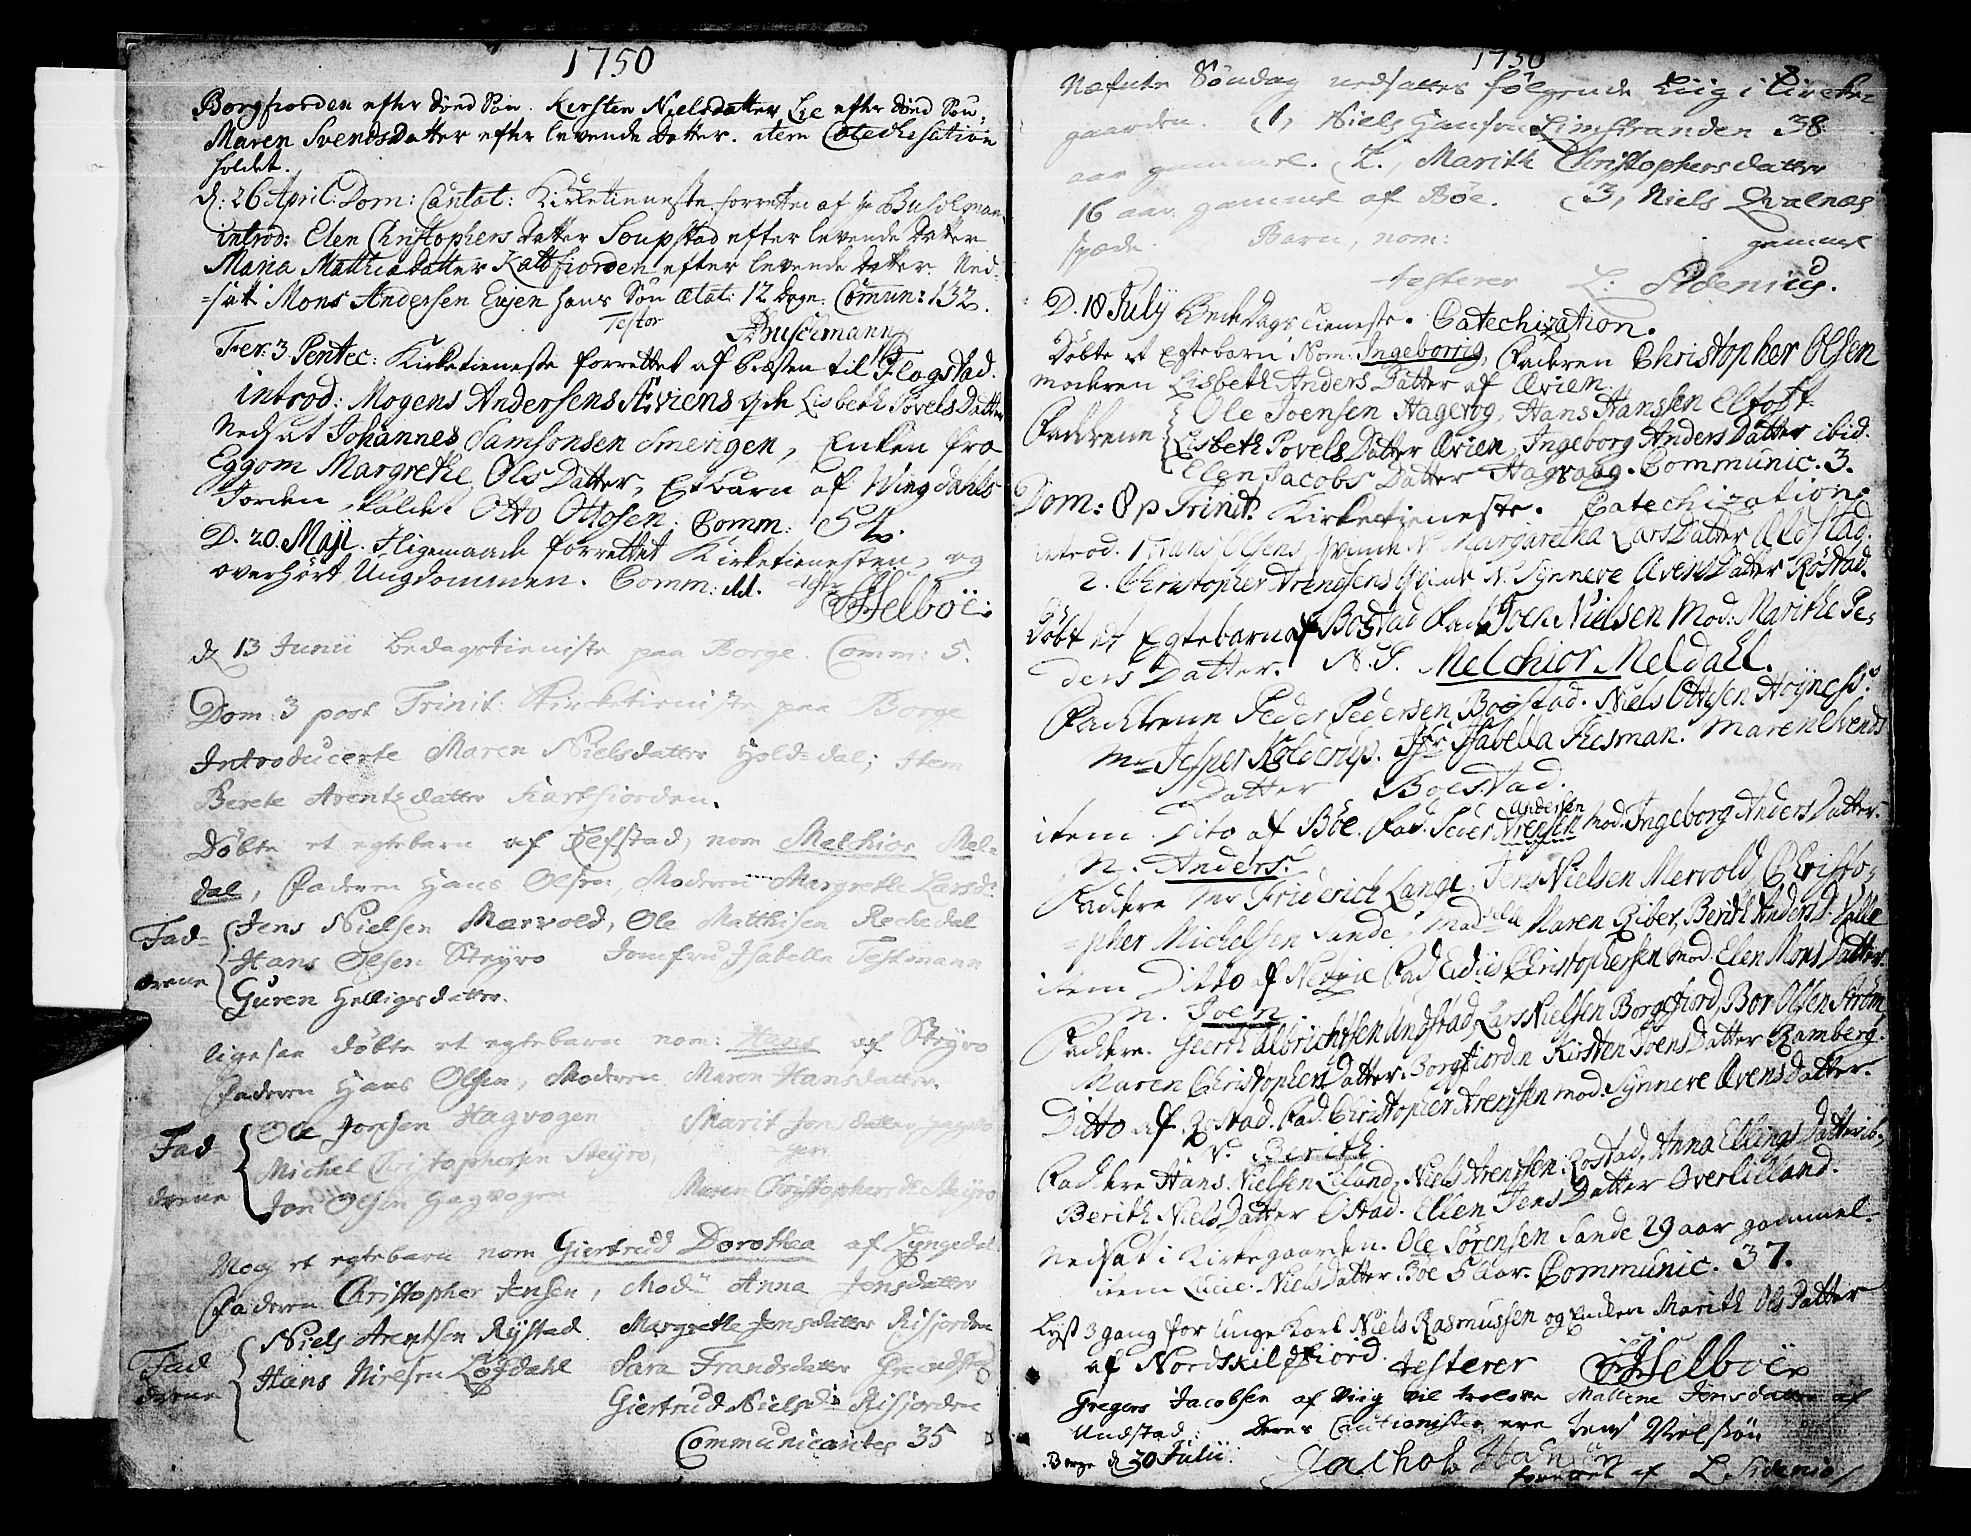 1750
Borgfiorden efter dönd Sön. Kirsten Nielsdatter Lie efter dönd Sön,
Maren Svendsdatter efter levende datter. item Catechisation
holdet.
d: 26 April: Dom: Cantat: Kirketieneste forrettet af Hr Buschman
introd: Elen Christophers datter Soupstad efter levende datter
Maria Matthiasdatter Kaltfiorden efter levende datter. Ned-
=satt Mons Andersen Eujen hans Sön ætat: 12 dage. Comun: 132.
Testor Buschmann
Fer: 3 Pentec: Kirketieneste forrettet af Præsten til Flagstad.
introd: Mogens Andersens Æviens qde Lisbeth Povels Datter
Nedsat Johannes Samsonsen Smerigen, Enken fra
Eggom Margrethe Ols Datter, Et barn af Wingdahls
Jorden, kaldet Otto Ottosen. Comm: 54.
D. 20. Maji. Ligemaade forrettet Kirketienesten, og
overhört Ungdommen. Comm: Helböe.
d 13 Junii bedagstieniste paa Borge. Comm: 5.
Dom: 3 post Trinit: Kirketieniste paa Borge
Introducerte Maren Nielsdatter Holdal; Item
Berete Arentsdatter Kartfiorden.
Döbte et egtebarn af Elfstad, nom Melchior Mel-
dal, Faderen Hans Olsen, Moderen Margrethe Larsdr
Fad- Jens Nielsen Marvold, Ole Matthisen Reckedal
Hans Olsen Steyro Jomfru Isabella Testmann
drene Guren Helligsdatter.
ligesaa döbte et egtebarn nom: Hans af Steyro
Faderen Hans Olsen, Moderen Maren Hansdatter.
Ole Jonsen Hagvogen Marit Jonsdatter Hagvo
Fad Michel Christophersen Steyro, -gen
drene Jon Olsen Hagvogen Maren Christophersdr Steyro
Nog et egtebarn nom Giertrud Dorothea af Lyngedal
Faderen Christopher Jensen, Mod: Anna Jensdatter
Niels Arentsen Rystad Margrethe Jensdatter Risjorden
Fad Hans Nielsen Løgdahl Sara Frandsdatter Grandstad
drene Giertrud Nielsdr Risjorden
Communicantes 35
1750
Næstute Söndag nedsattes fölgende Liig i Kircke-
gaarden. 1, Niels Hansen Limstranden 38
aar gammel. 2., Marith Christophersdatter
16 aar gammel af Böe. 3, Niels Qvalnæs
spæde Barn, nom: gammel
testerer L: Sidenius.
D. 18 July Bededags tieneste. Catechization.
Döbte et Egtebarn Nom: Ingeborrig, Faderen Christopher Olsen
moderen Lisbeth Anders Datter af Ævien.
Ole Joensen Hagevog, Hans Hanssen Eltoft.
Faddrene Lisbeth Povels Datter Ævien, Ingeborg Anders Datter ibid.
Elen Jacobs Datter Hagvaag. Communic. 3.
Dom: 8 p Trinit: Kirketieneste. Catechization.
introd. 1. Hans Olsens qvinde N. Margaretha Lars Datter Alestad.
2. Christopher Arentsens Qvinde N. Synneve Ævens Datter Röstad.
Döbt et Egtebarn af Bostad Fad: Joen Nielsen Mod: Marithe Pe-
ders Datter. N. S. Melchior Meldahl.
Faddrene Peder Pedersen Boestad. Niels Ottesen Höynes.
Mr Jesper Kolderup. Jfr Isabella Tiesman. Maren Svends
Datter Boestad.
item Dito af Böe. Fad. Peder Arensen Andersen Mod. Ingeborg Anders Datter.
N. Anders.
Faddre Mr Friderich Lange, Jens Nielsen Mervold, Christo-
=pher Michelsen Sande, Madelle Maren Riber, Berith Anders D. Valle
item Ditto af Fad Eidis Christophersen Mod. Elen Mons Datter.
N. Joen.
Faddre. Geerth Albrichtsen Undstad, Lars Nielsen Borgefiord, Bor Olsen Ström
Maren Christophers Datter Borgfiorden Kirsten Joens Datter Ramberg.
Ditto af Rostad. Fad. Christopher Arentsen Mod. Synneve Ævens Datter.
N. Berith.
Faddere Hans Nielsen Liland, Niels Arentsen Rostad, Anna Ellings Datter ib.
Berith Niels Datter Ostad. Ellen Jens Datter Overlilland.
Nedsat i Kirkegaarden. Ole Sörensen Sande 29 aar gammel.
item Lucie Niels Datter Boe 5 aar. Communic. 37.
Lyst 3 gang for unge Karl Niels Rasmussen og Enken Marith Ols Datter
af Nordskilfiord. testerer Helböe
Gregers Jacobsen af Wiig vil trolove Mallene Jonsdatter af
Undstad. deres Cautionister ere Jens Nielsön
Borge d 30 Julii. Jachob Hansön
forrettet af L. Sidenius